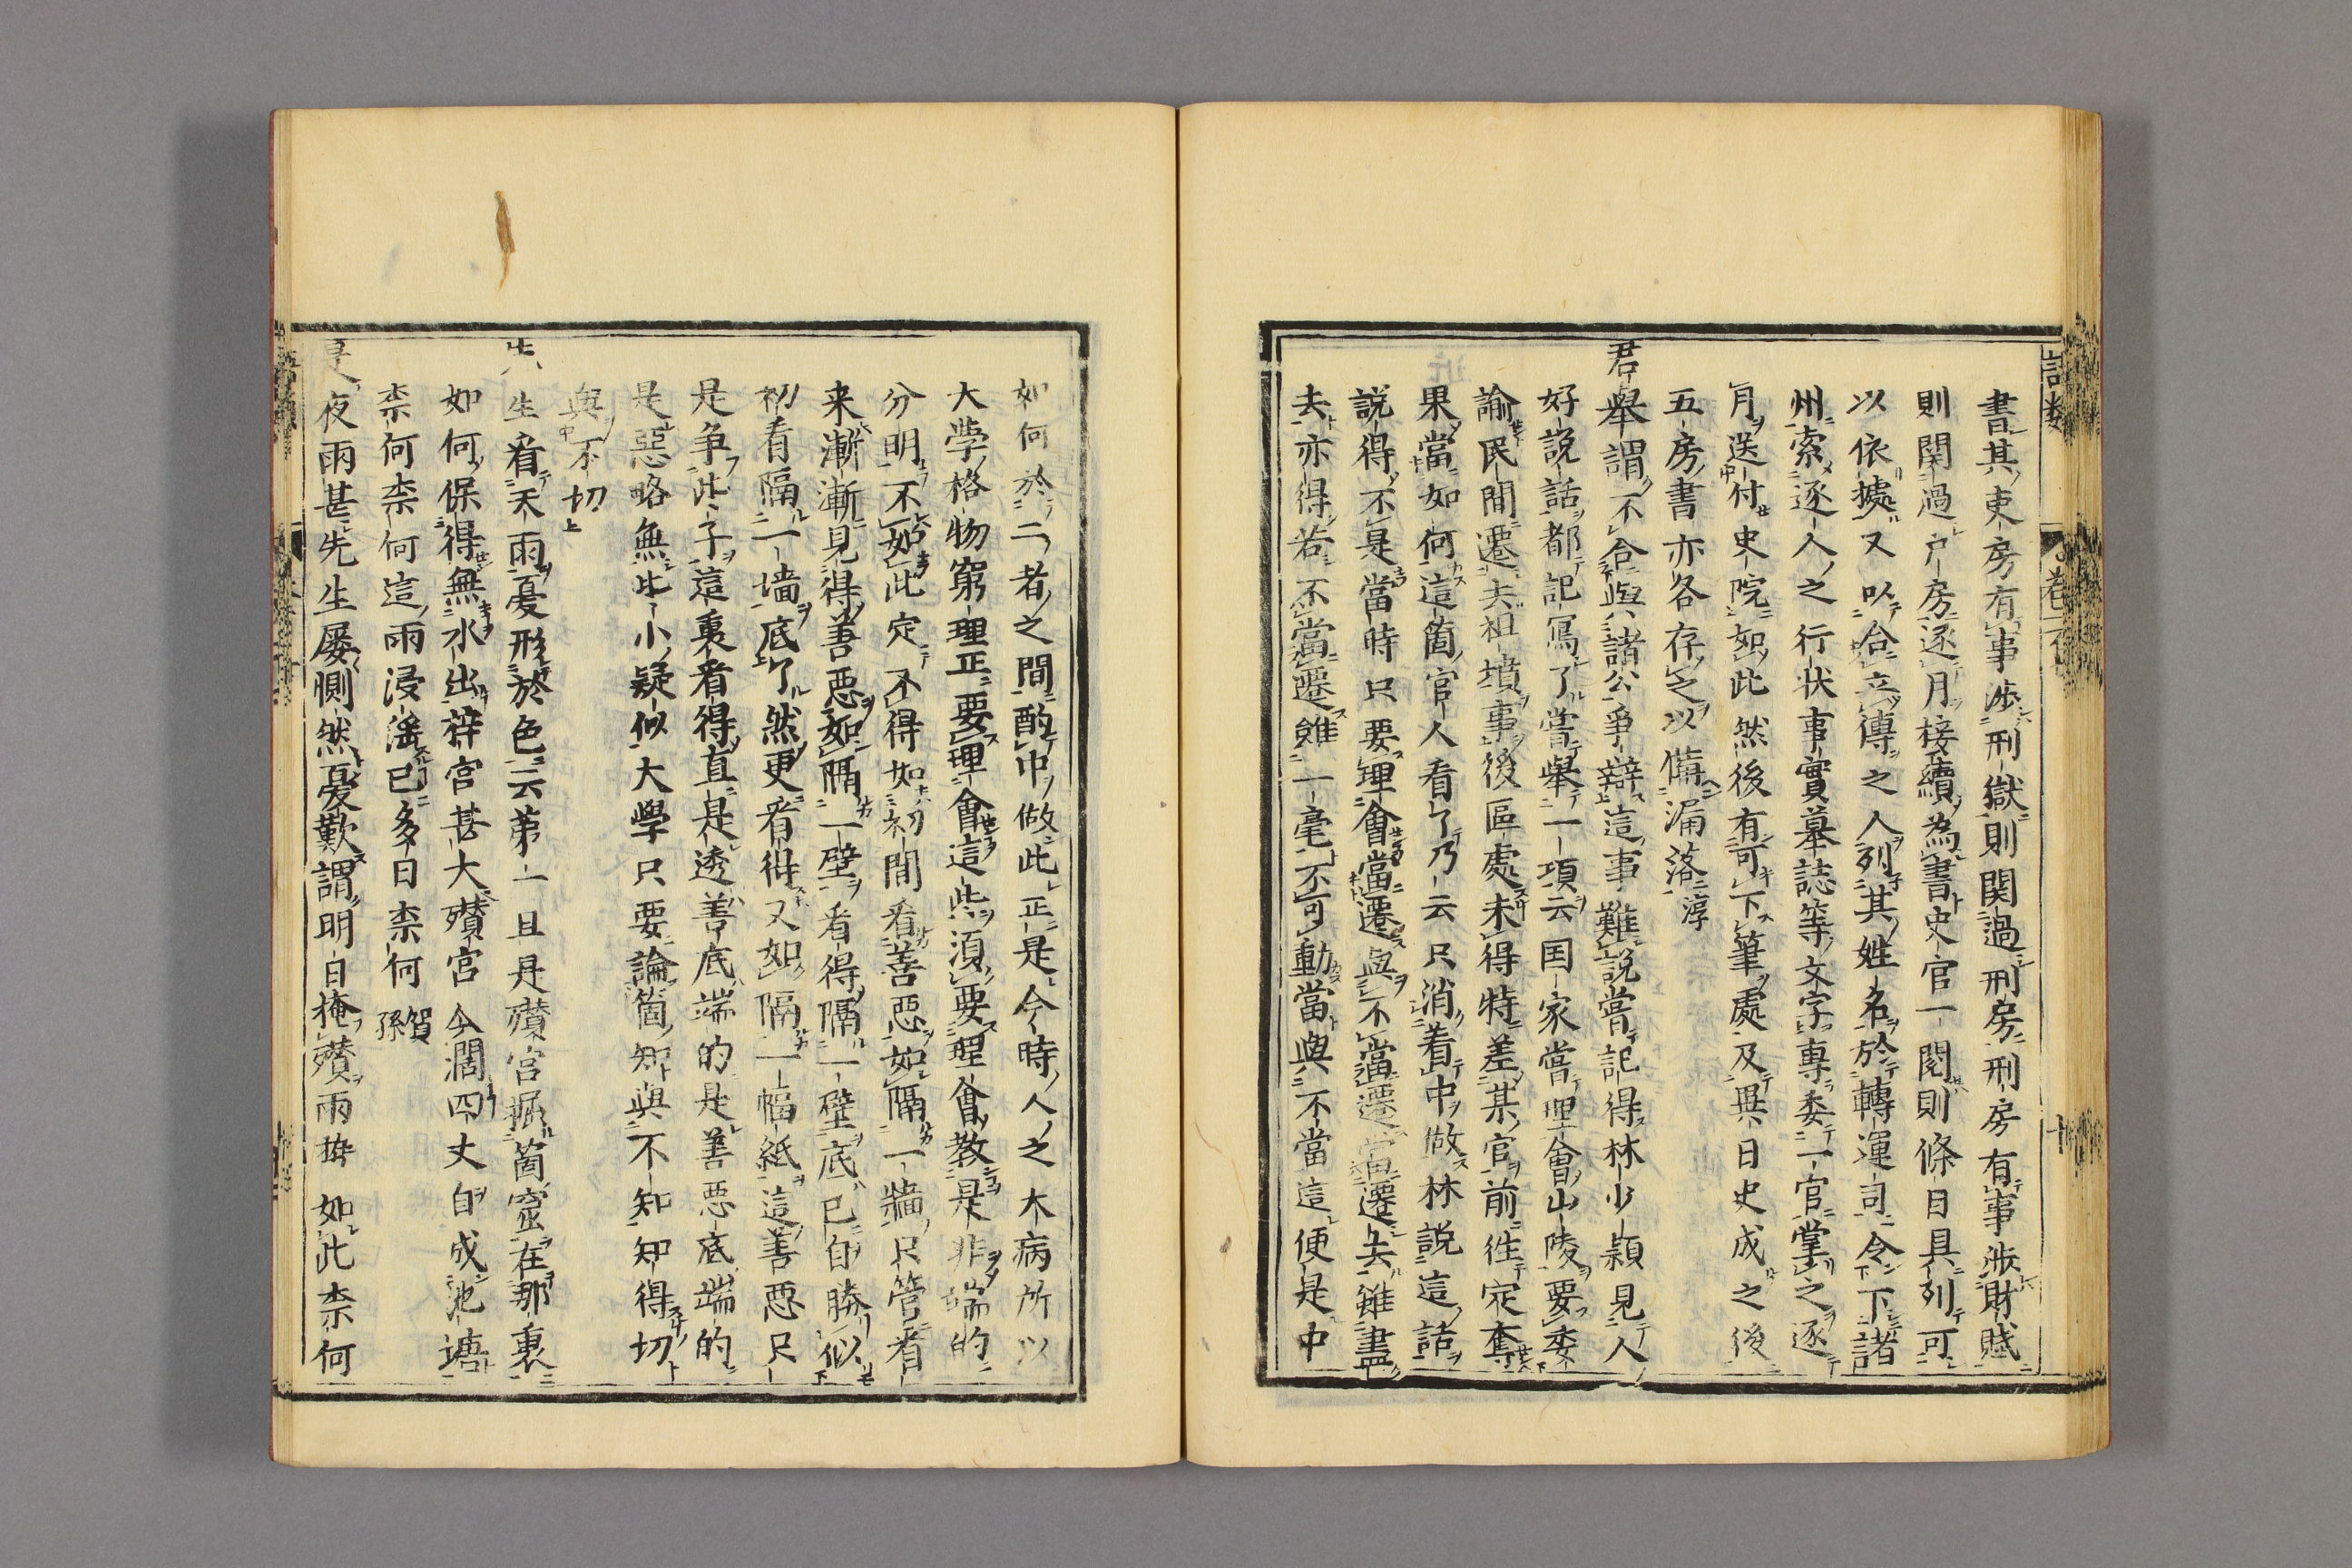 書其吏房有事渉刑獄則関過刑房刑房有事渉財賦
則関過戸房逐月接續為書史官一閲則條目具列可
以依據又以合立傳之人列其姓名於轉運司令下諸
州索逐人之行状事實墓誌等文字專委一官掌之逐
月送付史院如此然後有可下筆處及異日史成之後
五房書亦各存之以備漏落淳
君舉謂不合與諸公争辯這事難說嘗記得林少穎見人
好說話都記寫了嘗舉一項云国家嘗理會山陵要委
諭民間遷去祖墳事後區處未得特差某官前徃定奪
果當如何這箇官人看了乃云只消着中做林説這話
説得不是當時只要理會當遷與不當遷當遷去雖盡
去亦得若不當遷雖一毫不可動當與不當這便是中
如何於二者之間酌中做此正是今時人之大病所以
大學格物窮理正要理會這些須要理會教是非端的
分明不如此定不得如初間看善惡如隔一牆只管看
来漸漸見得善惡如隔一壁看得隔一壁底已自勝似
初看隔一墙底了然更看得又如隔一幅紙這善惡只
是争此子這裏看得直是透善底端的是善惡底端的
是惡略無此小疑似大學只要論箇知與不知知得切
與不切
先生看天雨憂形於色云第一且是殯宮掘箇窟在那裏
如何保得無水出梓宮甚大殯宮今濶四丈自成池塘
柰何柰何這雨浸滛已多日柰何賀孫
是夜雨甚先生屡惻然憂歎謂明日掩殯雨勢如此柰何
語類
卷一百
十